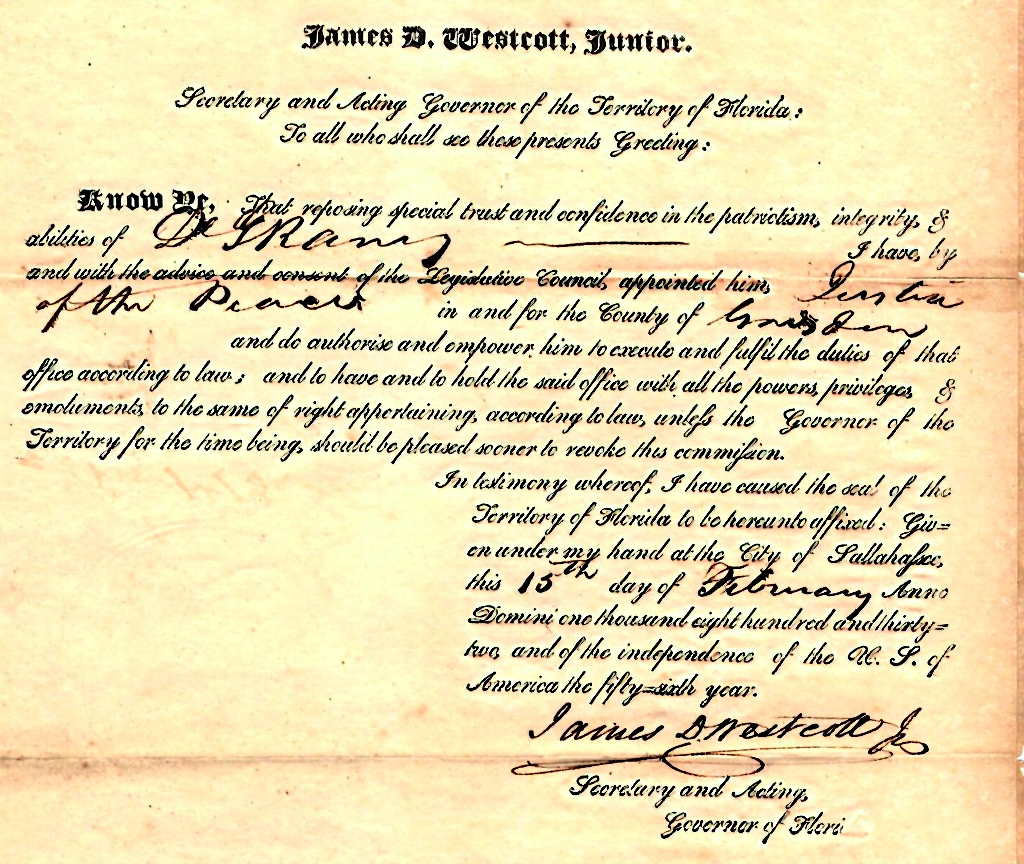 James D. Westcott, Junior.
Secretary and Acting Governor of the Territory of Florida:
To all who shall see these presents Greeting:
Know Ye, That reposing special trust and confidence in the patriotism, integrity, &
abilities of D G Raney I have, by
and with the advice and consent of the Legislative Council, appointed him, Justice
of the Peace in and for the County of Gadsden
and do authorise and empower him to execute and fulfil the duties of that
office according to law; and to have and to hold the said office with all the powers, privileges &
emoluments, to the same of right appertaining, according to law, unless the Governor of the
Territory for the time being, should be pleased sooner to revoke this commission.
In testimony whereof, I have caused the seal of the
Territory of Florida to be hereunto affixed: Giv=
en under my hand at the City of Tallahassee,
this 15th day of February Anno
Domini one thousand eight hundred and thirty=
two, and of the independence of the U. S. of
America the fifty=sixth year.
James D. Westcott Jr
Secretary and Acting,
Governor of Flori